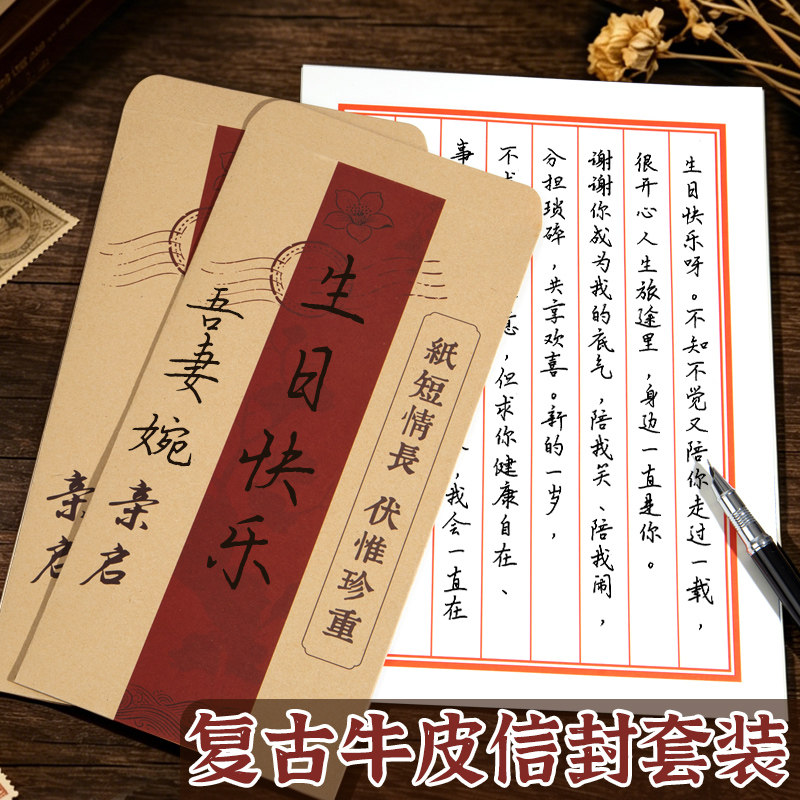 生日快乐呀。不知不觉又陪你走过一载，
很开心人生旅途里，身边一直是你。
谢谢你成为我的底气，陪我笑、陪我闹，
分担琐碎，共享欢喜。新的一岁，
不
意，但求你健康自在、
事
，我会一直在
紙短情長 伏惟珍重
生日快乐
吾妻婉
亲启
亲启
复古牛皮信封套装